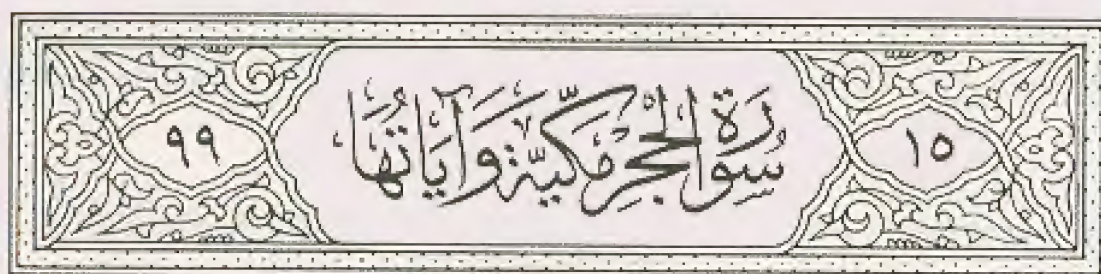 ١٥ سُورَةُ الْحِجْرِ مَكِّيَّةٌ وَآيَاتُهَا ٩٩